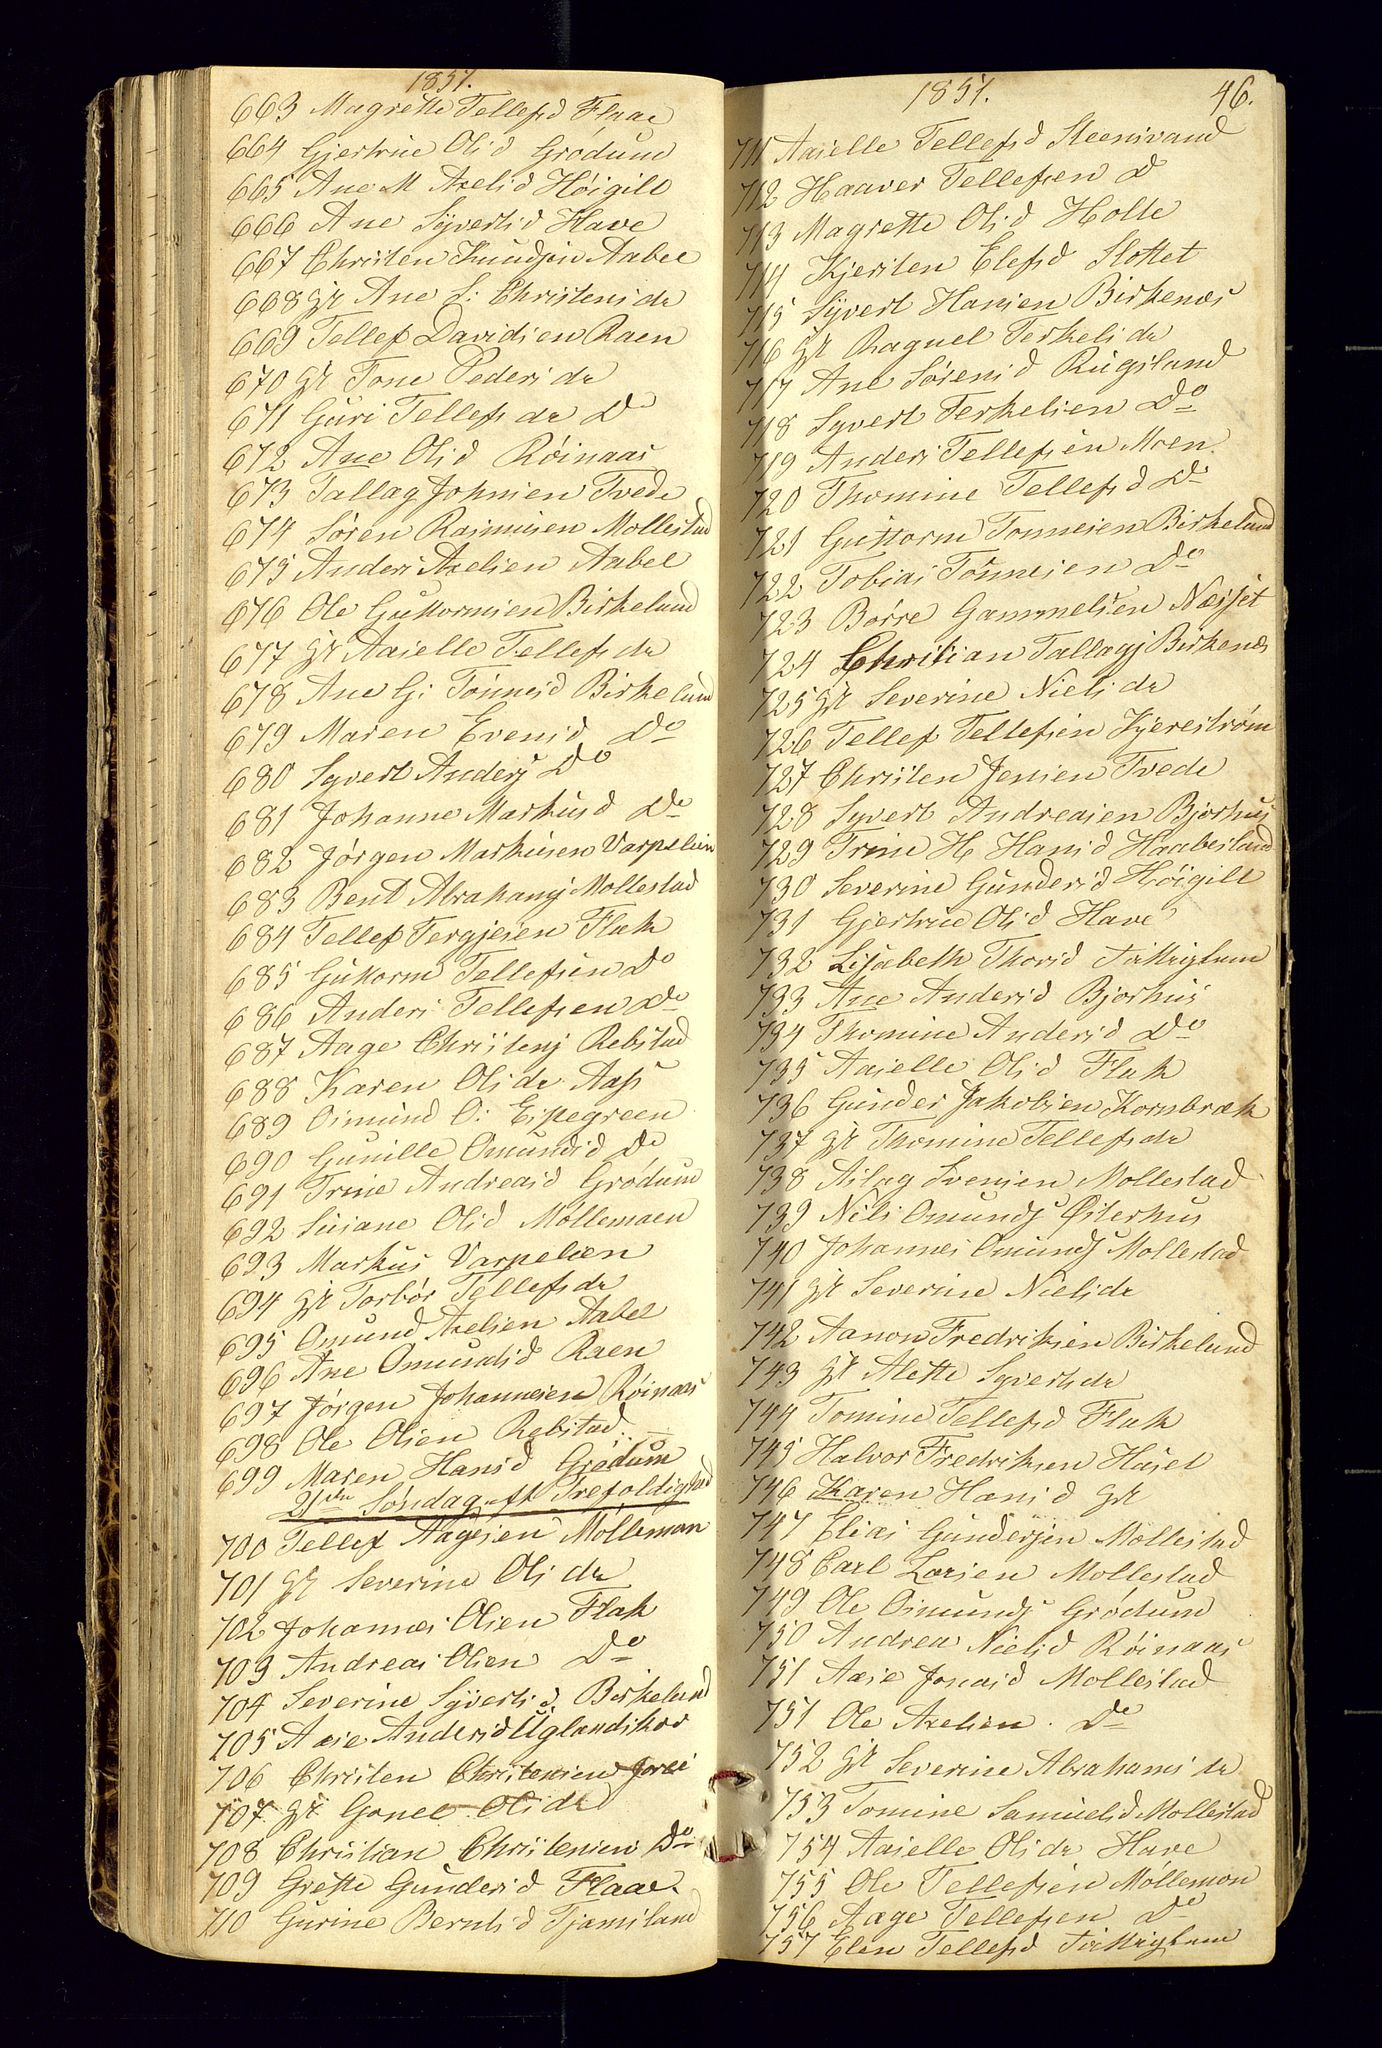 1851.
663 Magrethe Tellefsd Flaae
664 Gjertrue Olsd Grödum
665 Ane M Axelsd Høigilt
666 Ane Syvertsd Have
667 Christen Knudsen Aabel
668 gk Ane S: Christensdr
669 Tellef Davidsen Raen
670 gk Tone Pedersdr
671 Guri Tellefsdr Do
672 Ane Olsd Röinaas
673 Tallag Johnsen Tvede
674 Sören Rasmusen Mollestad
675 Anders Axelsen Aabel
676 Ole Guttormsen Birkeland
677 gk Aasielle Tellefsdr
678 Ane G: Tönnesd Birkeland
679 Maren Evensd Do
680 Syvert Anders Do
681 Johanne Markusd Do
682 Jørgen Markusen Varpelien
683 Bent Abrahams Mollestad
684 Tellef Tergjesen Flak
685 Guttorm Tellefsen Do
686 Anders Tellefsen Do
687 Aage Christens Rebstad
688 Karen Olsdr Aas
689 Osmund O: Espegreen
690 Gunille Omundsd Do
691 Trine Andreasd Grödum
692 Susane Olsd Möllemoen
693 Markus Varpelien
694 gk Torbör Tellefsdr
695 Omund Axelsen Aabel
696 Ane Omundsd Raen
697 Jörgen Johannesen Röinaas
698 Ole Olsen Rebstad
699 Maren Hansd Grödum
21de Söndag eft Trefoldighed
700 Tellef Aagesen Möllemon
701 gk Severine Olsdr
702 Johannes Olsen Flak
703 Andreas Olsen Do
704 Severine Syvertsd Birkeland
705 Aase Andersd Uglandskov
706 Christen Christensen
707 gk Gonel Olsdr
708 Christian Christensen Do
709 Grethe Gundersd Flaae
710 Gurine Berntsd Tjamsland
1851. 46.
711 Aasielle Tellefsd Steensvand
712 Haaver Tellefsen Do
713 Magrethe Olsd Holte
714 Kjersten Elefsd Slottet
715 Syvert Hansen Birkenes
716 gk Raguel Terkelsdr
717 Ane Sörensd Rugsland
718 Syvert Terkelsen Do
719 Anders Tellefsen Moen
720 Thomine Tellefsd Do
721 Guttorm Tönnesen Birkeland
722 Tobias Tönnesen Do
723 Borre Gammelsen Næsset
724 Christian Tallags Birkenes
725 gk Severine Nielsdr
726 Tellef Tellefsen Kjereström
727 Christen Jensen Tvede
728 Syvert Andreasen Bjorhus
729 Trine H Hansd Haabesland
730 Severine Gundersd Höigilt
731 Gjertrue Olsd Have
732 Lisabeth Thorsd
733 Ane Andersd Bjorhus
734 Thomine Andersd Do
735 Aasielle Olsd Flak
736 Gunder Jakobsen Kornbræk
737 gk Thomine Tellefsdr
738 Aslag Svensen Mollestad
739 Nils Omunds Østerhus
740 Johannes Omunds Mollestad
741 gk Severine Nielsdr
742 Aanon Fredriksen Birkeland
743 gk Alette Syvertsdr
744 Tomine Tellefsd Flak
745 Halvor Fredriksen Hasel
746 Karen Hansd gk
747 Elias Gundersen Mollestad
748 Carl Larsen Mollestad
749 Ole Osmunds Grödum
750 Andrea Nielsd Röinaas
751 Aase Jonasd Mollestad
751 Ole Axelsen Do
752 gk Severine Abrahamsdr
753 Tomine Samuelsd Mollestad
754 Aasielle Olsdr Have
755 Ole Tellefsen Möllemon
756 Aage Tellefsen Do
757 Elen Tellefsd